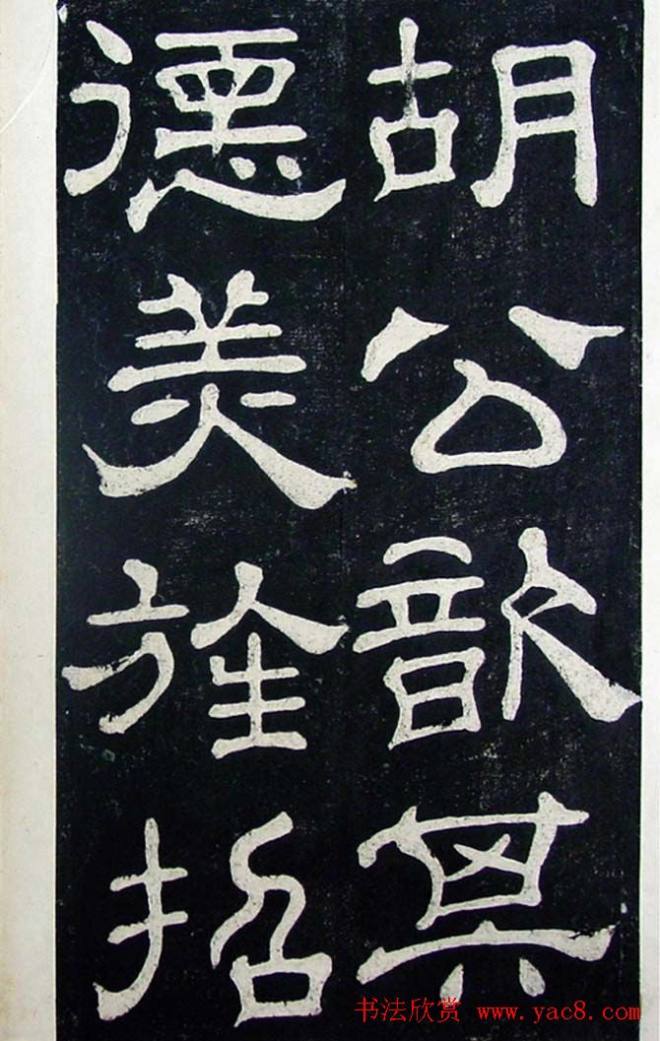 胡公歆其
德美旌招
书法欣赏 www.yac8.com